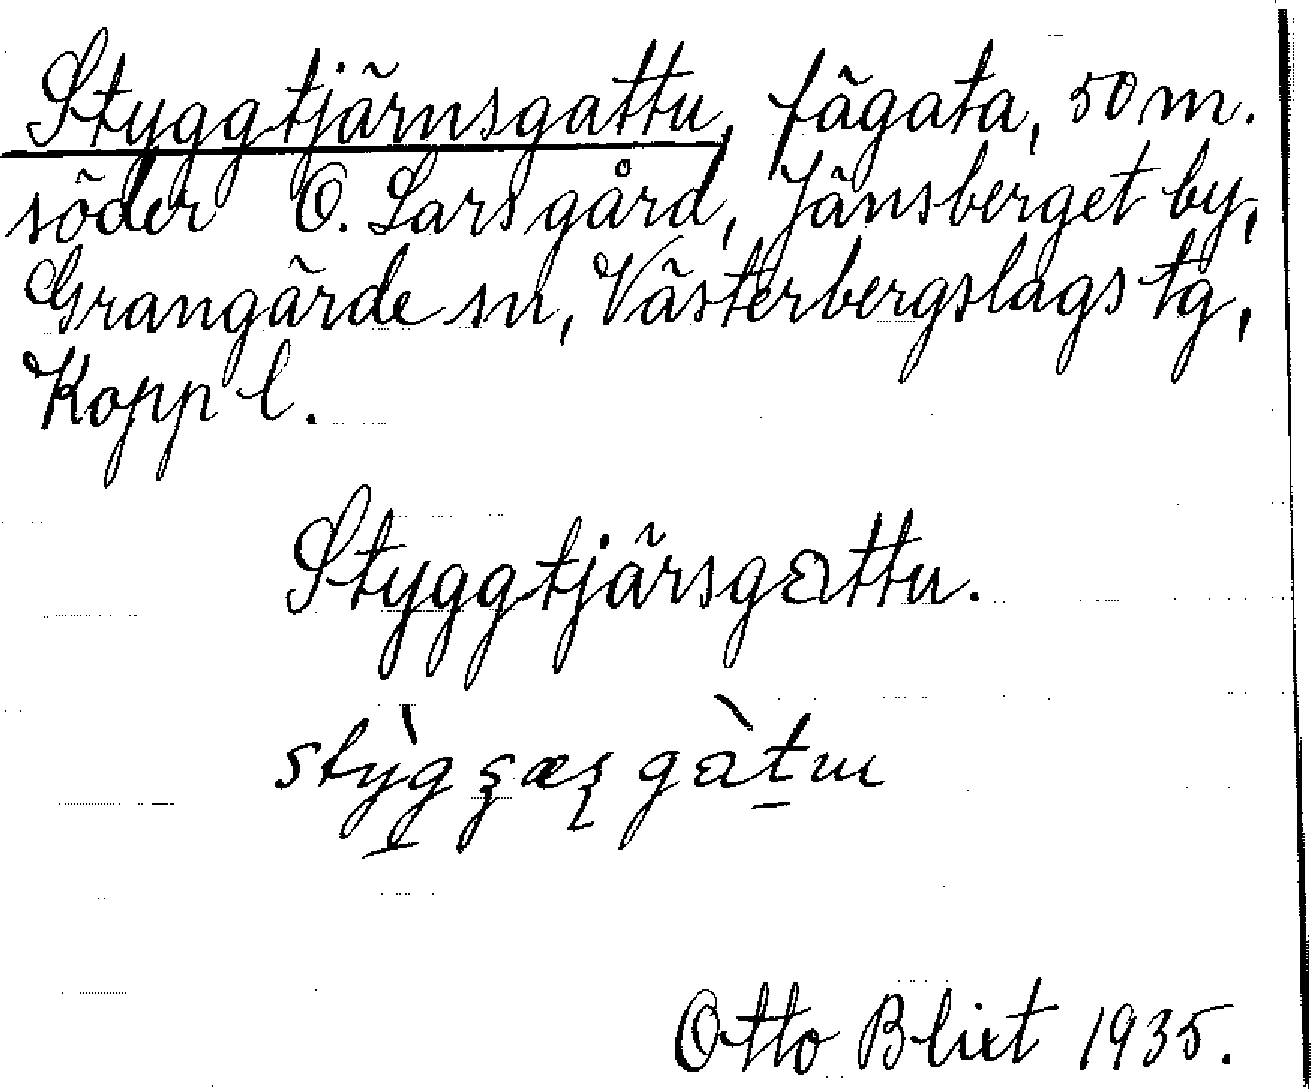 Styggtjärnsgattu, fägata, 50 m.
söder O. Lars gård, Jänsberget by,
Grangärde sn, Västerbergslags tg,
Kopp l.
Styggtjärsgattu.
Otto Blixt 1935.